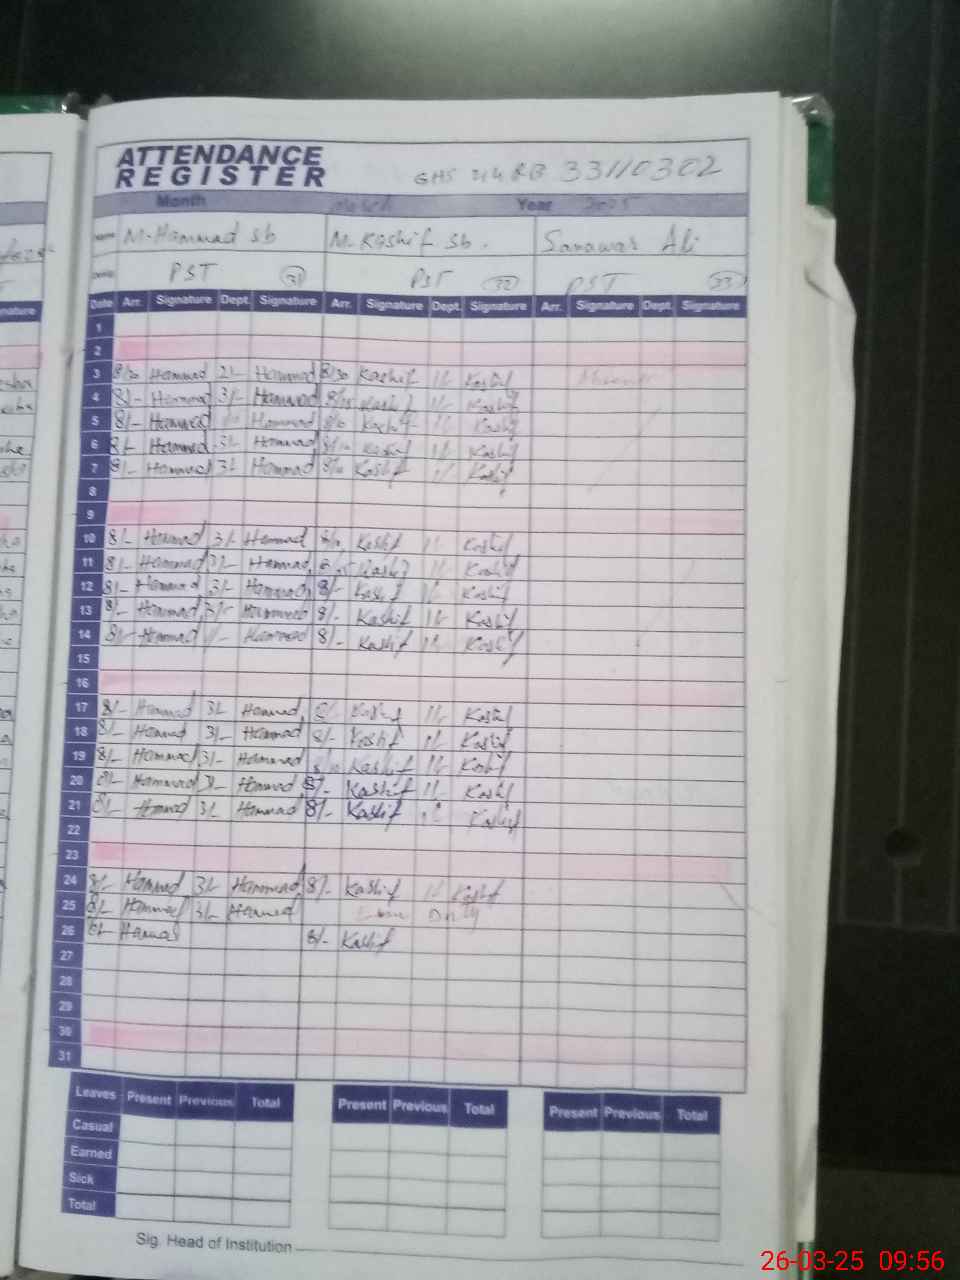 ATTENDANCE
REGISTER GHS RB 33110302
Month Year 2025
M. Hammad sb M. Kashif Sb. Sanawar Ali
PST 31 PST 32 PST 33
Date Arr. Signature Dept. Signature Arr. Signature Dept. Signature Arr. Signature Dept. Signature
1
2
3 8/30 Hammad 2/- Hammad 8/30 Kashif 1/- Kashif
4 8/- Hammad 3/- Hammad Kashif 1/- Kashif
5 8/- Hammad Hammad 8/10 Kashif 1/- Kashif
6 8/- Hammad 3/- Hammad 8/10 Kashif 1/- Kashif
7 8/- Hammad 3/- Hammad 8/10 Kashif 1/- Kashif
8
9
10 8/- Hammad 3/- Hammad 8/10 Kashif 1/- Kashif
11 8/- Hammad 3/- Hammad Kashif 1/- Kashif
12 8/- Hammad 3/- Hammad 8/- Kashif 1/- Kashif
13 8/- Hammad 3/- Hammad 8/- Kashif 1/- Kashif
14 8/- Hammad 1/- Hammad 8/- Kashif 1/- Kashif
15
16
17 8/- Hammad 3/- Hammad 8/- Kashif 1/- Kashif
18 8/- Hammad 3/- Hammad 8/- Kashif 1/- Kashif
19 8/- Hammad 3/- Hammad 8/10 Kashif 1/- Kashif
20 8/- Hammad 3/- Hammad 8/- Kashif 1/- Kashif
21 8/- Hammad 3/- Hammad 8/- Kashif Kashif
22
23
24 8/- Hammad 3/- Hammad 8/- Kashif 1/- Kashif
25 8/- Hammad 3/- Hammad Duty
26 8/- Hammad 8/- Kashif
27
28
29
30
31
Leaves Present Previous Total Present Previous Total Present Previous Total
Casual
Earned
Sick
Total
Sig. Head of Institution
26-03-25 09:56